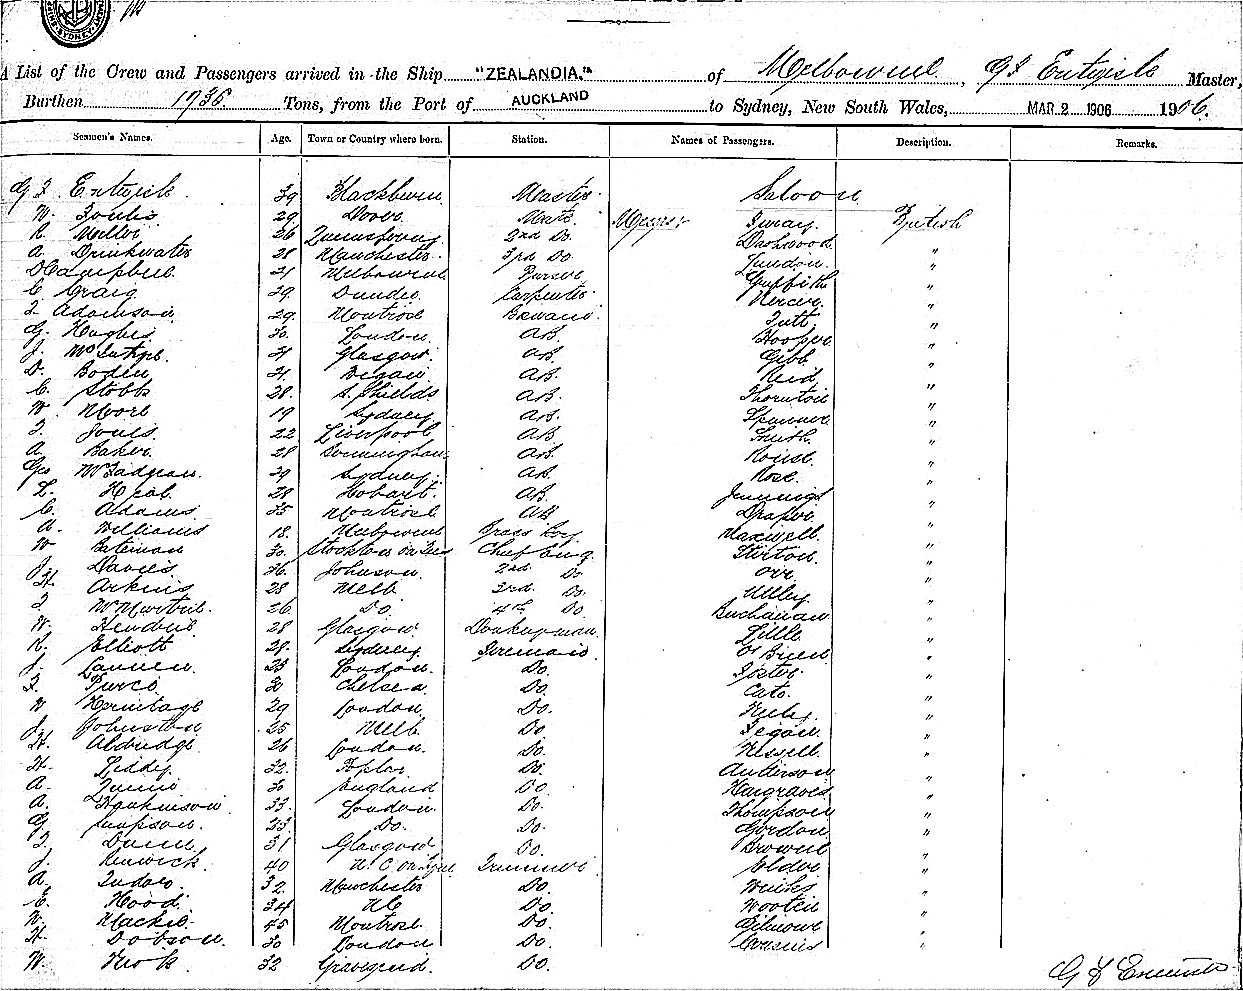 A List of the Crew and Passengers arrived in the Ship "ZEALANDIA." of Melbourne, G F Entwisle Master,
Burthen 1936 Tons, from the Port of AUCKLAND to Sydney, New South Wales, MAR 2 1906 1906.
Seamen's Names. Age. Town or Country where born. Station. Names of Passengers. Description. Remarks.
G F Entwisle 39 Blackburn Master Saloon
W. 29 Dover Mate Messrs British
R Miller 26 Queensferry 2nd Do Dashwood "
A. Drinkwater 28 Manchester 3rd Do London "
D Campbell 21 Melbourne Purser Griffith "
C Craig 29 Dundee Carpenter Mercer "
F Adamson 29 Montrose Tutt "
G. Hughes 30 London AB. Hooper "
J. McIntyre 21 Glasgow AB. Gibb "
D. Boden 21 AB. Reid "
C. Stobbs 28 S. Shields AB. Thornton "
W. Moore 19 Sydney AB. Spencer "
F. Jones 22 Liverpool AB Smith "
A. Baker 28 Birmingham AB. Rouse "
Geo McFadyean 29 Sydney AB Rose "
L. Heal 28 Hobart AB. Jennings "
C. Adams 35 Montrose AB Draper "
A. Williams 18 Melbourne Brass Boy Maxwell "
W Bateman 30 Stockton on Tees Chief Eng. Stirton "
J. Davies 26 Johnson 2nd Do Orr "
H. Arkins 28 Melb 3rd. Do. Utley "
F. 26 Do. 4th Do Buchanan "
W. 28 Glasgow Donkeyman Little "
R. Elliott 28 Sydney Firemans O'Brien "
J. 23 London Do. Foster "
F. Purco 30 Chelsea Do. Cato "
W Hermitage 29 London Do. "
J. Johnston 25 Melb Do "
H. Aldridge 26 London Do. "
H. Liddy 32 Do. Anderson "
A. 30 England Do. Hargraves "
A. Hankinson 33 London Do. Thompson "
G Simpson 23 Do. Do. Gordon "
F. Dunn 31 Glasgow Do. Browne "
J. Renwick 40 N. C on Tyne Trimmers "
A. Tudor 32 Manchester Do. "
E. Hood 34 NC Do. Wooten "
W. Mackie 45 Montrose Do. Gilmour "
H. Dobson 30 London Do. Cousins "
W. 32 Gravesend Do.
G F Entwisle